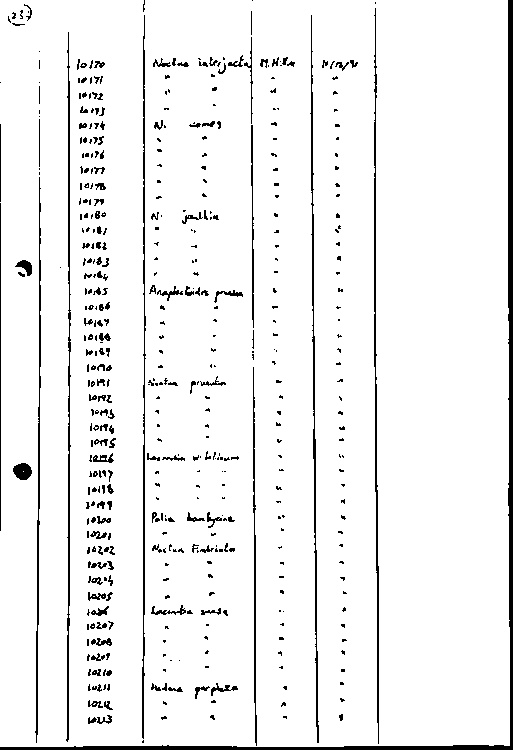 10170 Noctua interjecta M. Hill
10171 " " " "
10172 " " " "
10173 " " " "
10174 N. comes " "
10175 " " " "
10176 " " " "
10177 " " " "
10178 " " " "
10179 " " " "
10180 N. janthina " "
10181 " " " "
10182 " " " "
10183 " " " "
10184 " " " "
10185 Anaplectoides prasina " "
10186 " " " "
10187 " " " "
10188 " " " "
10189 " " " "
10190 " " " "
10191 Noctua pronuba " "
10192 " " " "
10193 " " " "
10194 " " " "
10195 " " " "
10196 Lacanobia w-latinum " "
10197 " " " " "
10198 " " " " "
10199 " " " " "
10200 Polia bombycina " "
10201 " " " "
10202 Noctua Fimbriata " "
10203 " " " "
10204 " " " "
10205 " " " "
1026 Lacanobia suasa " "
10207 " " " "
10208 " " " "
10209 " " "
10210 " " " "
10211 Hadena perplexa " "
10212 " " " "
10213 " " " "